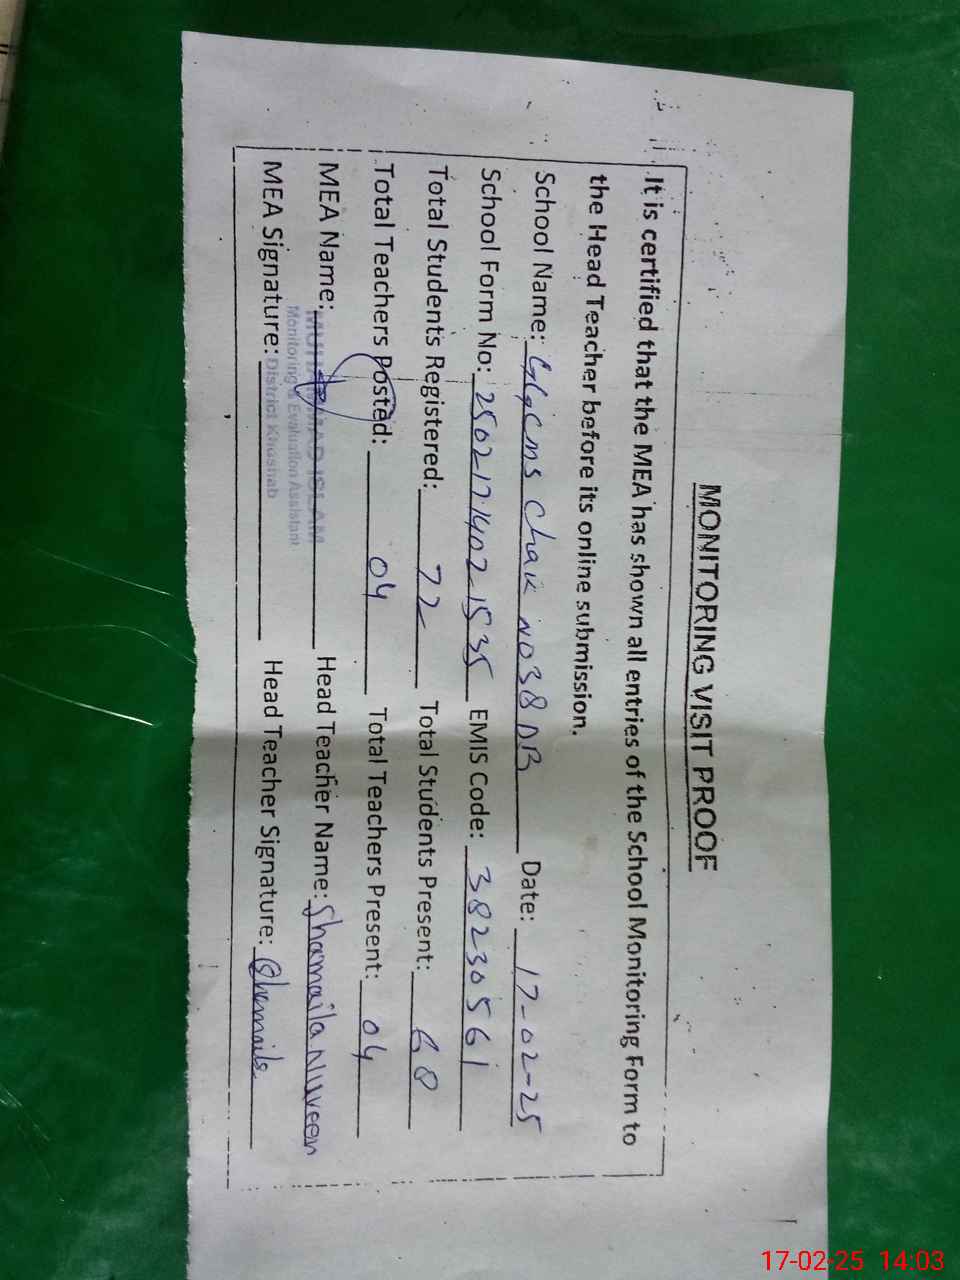 MONITORING VISIT PROOF
It is certified that the MEA has shown all entries of the School Monitoring Form to
the Head Teacher before its online submission.
School Name: GGCMS Chak NO38 DB Date: 17-02-25
School Form No: 25021714021535 EMIS Code: 38230561
Total Students Registered: 72 Total Students Present: 68
Total Teachers Posted: 04 Total Teachers Present: 04
MEA Name: MUHAMMAD ISLAM Head Teacher Name: Shamaila Nuveen
Monitoring & Evaluation Assistant
MEA Signature: District Khushab Head Teacher Signature: Shemaila
17-02-25 14:03